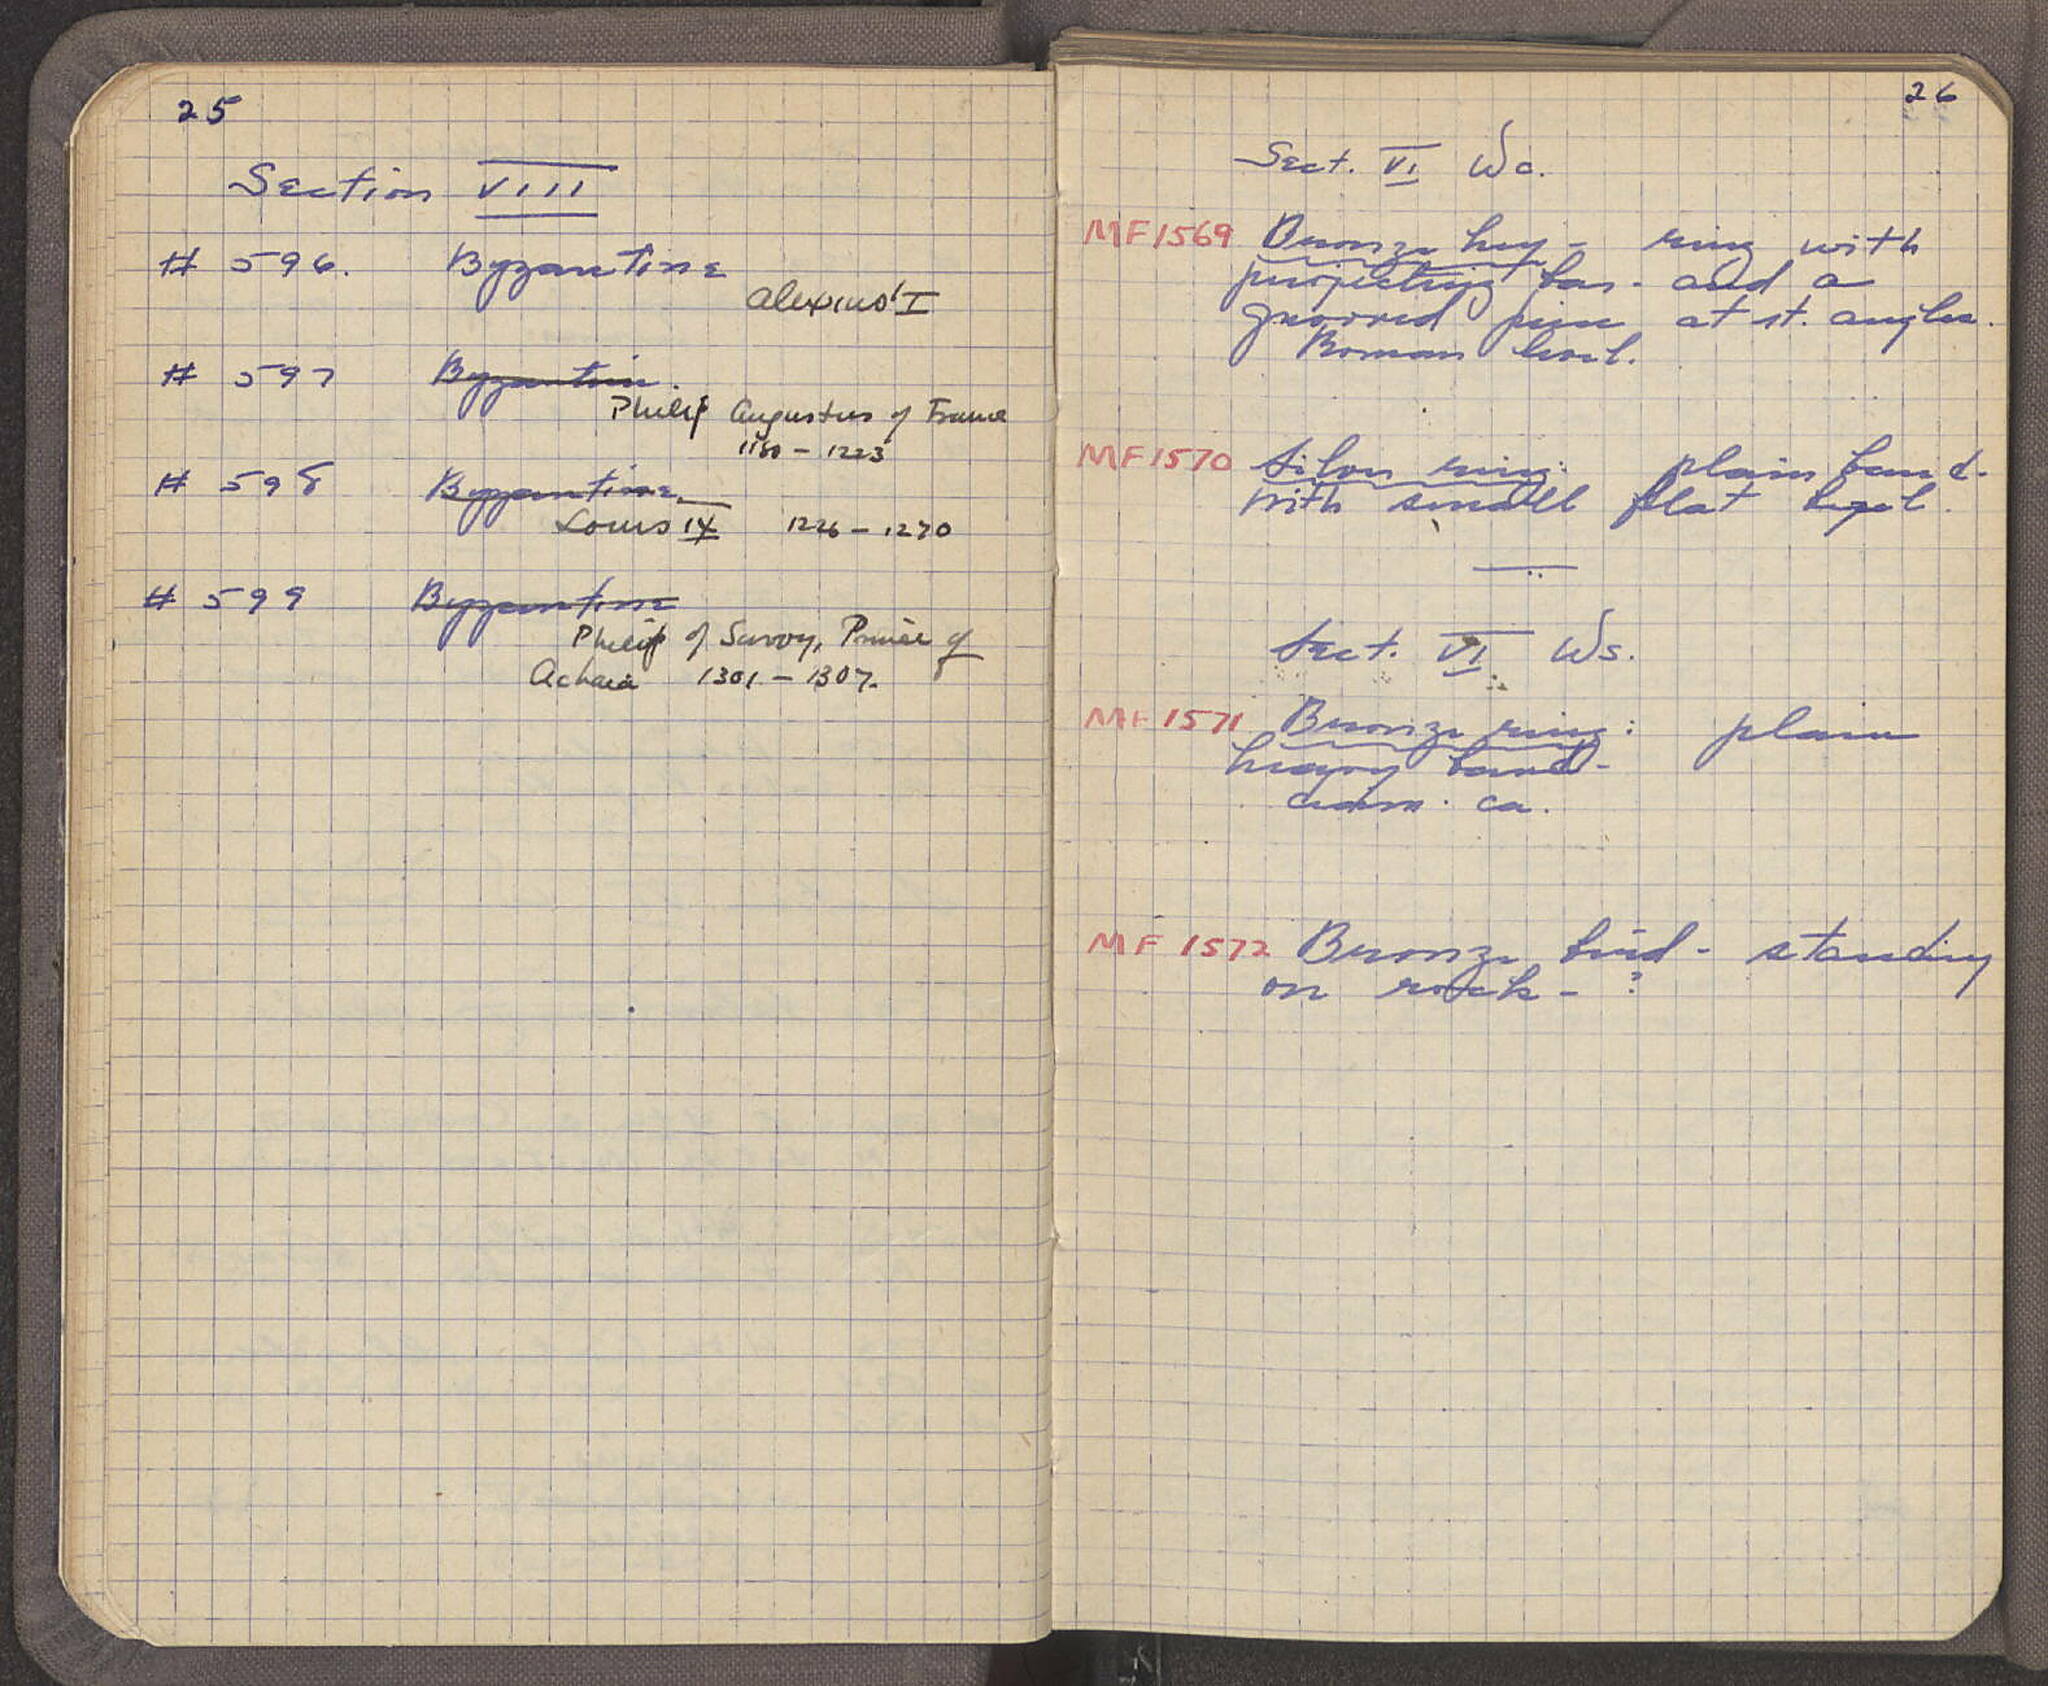 25
Section VIII
# 596. Byzantine
Alexius I
# 597 Byzantine.
Philip Augustus of France
1180 - 1223
# 598 Byzantine.
Louis IX 1226 - 1270
# 599 Byzantine
Philip of Savoy, Prince of
Achaia 1301 - 1307.
26
Sect. VI Wc.
MF1569 Bronze key - ring with
projecting bar - and a
pin at rt. angles.
Roman level.
MF1570 Silver ring: plain band -
with small flat bezel.
Sect. VI Ws.
MF 1571 Bronze ring: plain
heavy band -
ca.
MF 1572 Bronze bird - standing
on rock - ?